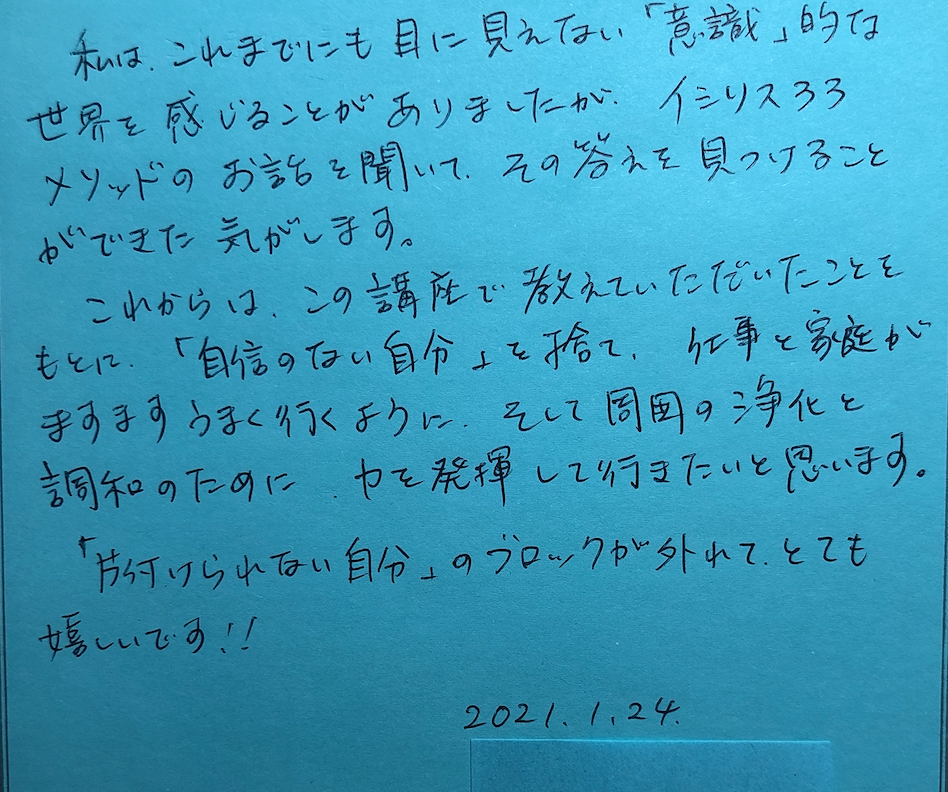 私は、これまでにも目に見えない「意識」的な
世界を感じることがありましたが、イシリス33
メソッドのお話を聞いて、その答えを見つけること
ができた気がします。
これからは、この講座で教えていただいたことを
もとに、「自信のない自分」を捨て、仕事と家庭が
ますますうまく行くように、そして周囲の浄化と
調和のために、力を発揮して行きたいと思います。
「片付けられない自分」のブロックが外れて、とても
嬉しいです!!
2021.1.24.